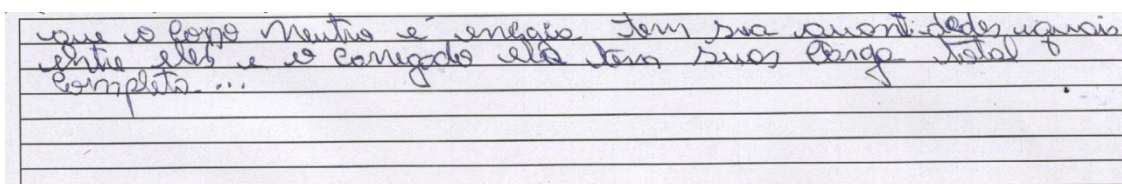 que o corpo neutro é energia tem sua quantidades iguais
entre eles e o carregado ela tem suas carga total
completa...